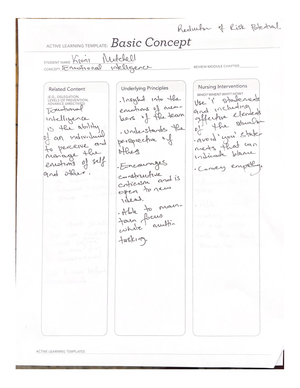 Reduction of Risk Potential
ACTIVE LEARNING TEMPLATE: Basic Concept
STUDENT NAME Kimi Mitchell
CONCEPT Emotional intelligence REVIEW MODULE CHAPTER
Related Content
(E.G., DELEGATION,
LEVELS OF PREVENTION,
ADVANCE DIRECTIVES)
Emotional
intelligence
is the ability
of an individual
to perceive and
manage the
emotions of self
and others.
Underlying Principles
• Insight into the
emotions of mem-
bers of the team
• Understands the
perspective of
others
• Encourages
constructive
criticism and is
open to new
ideas
• Able to main-
tain focus
while multi-
tasking.
Nursing Interventions
WHO? WHEN? WHY? HOW?
Use 'I' statements
and including
affective elements
of the situation
• avoid 'you' state
ments that can
indicate blame
• Convey empathy
ACTIVE LEARNING TEMPLATES